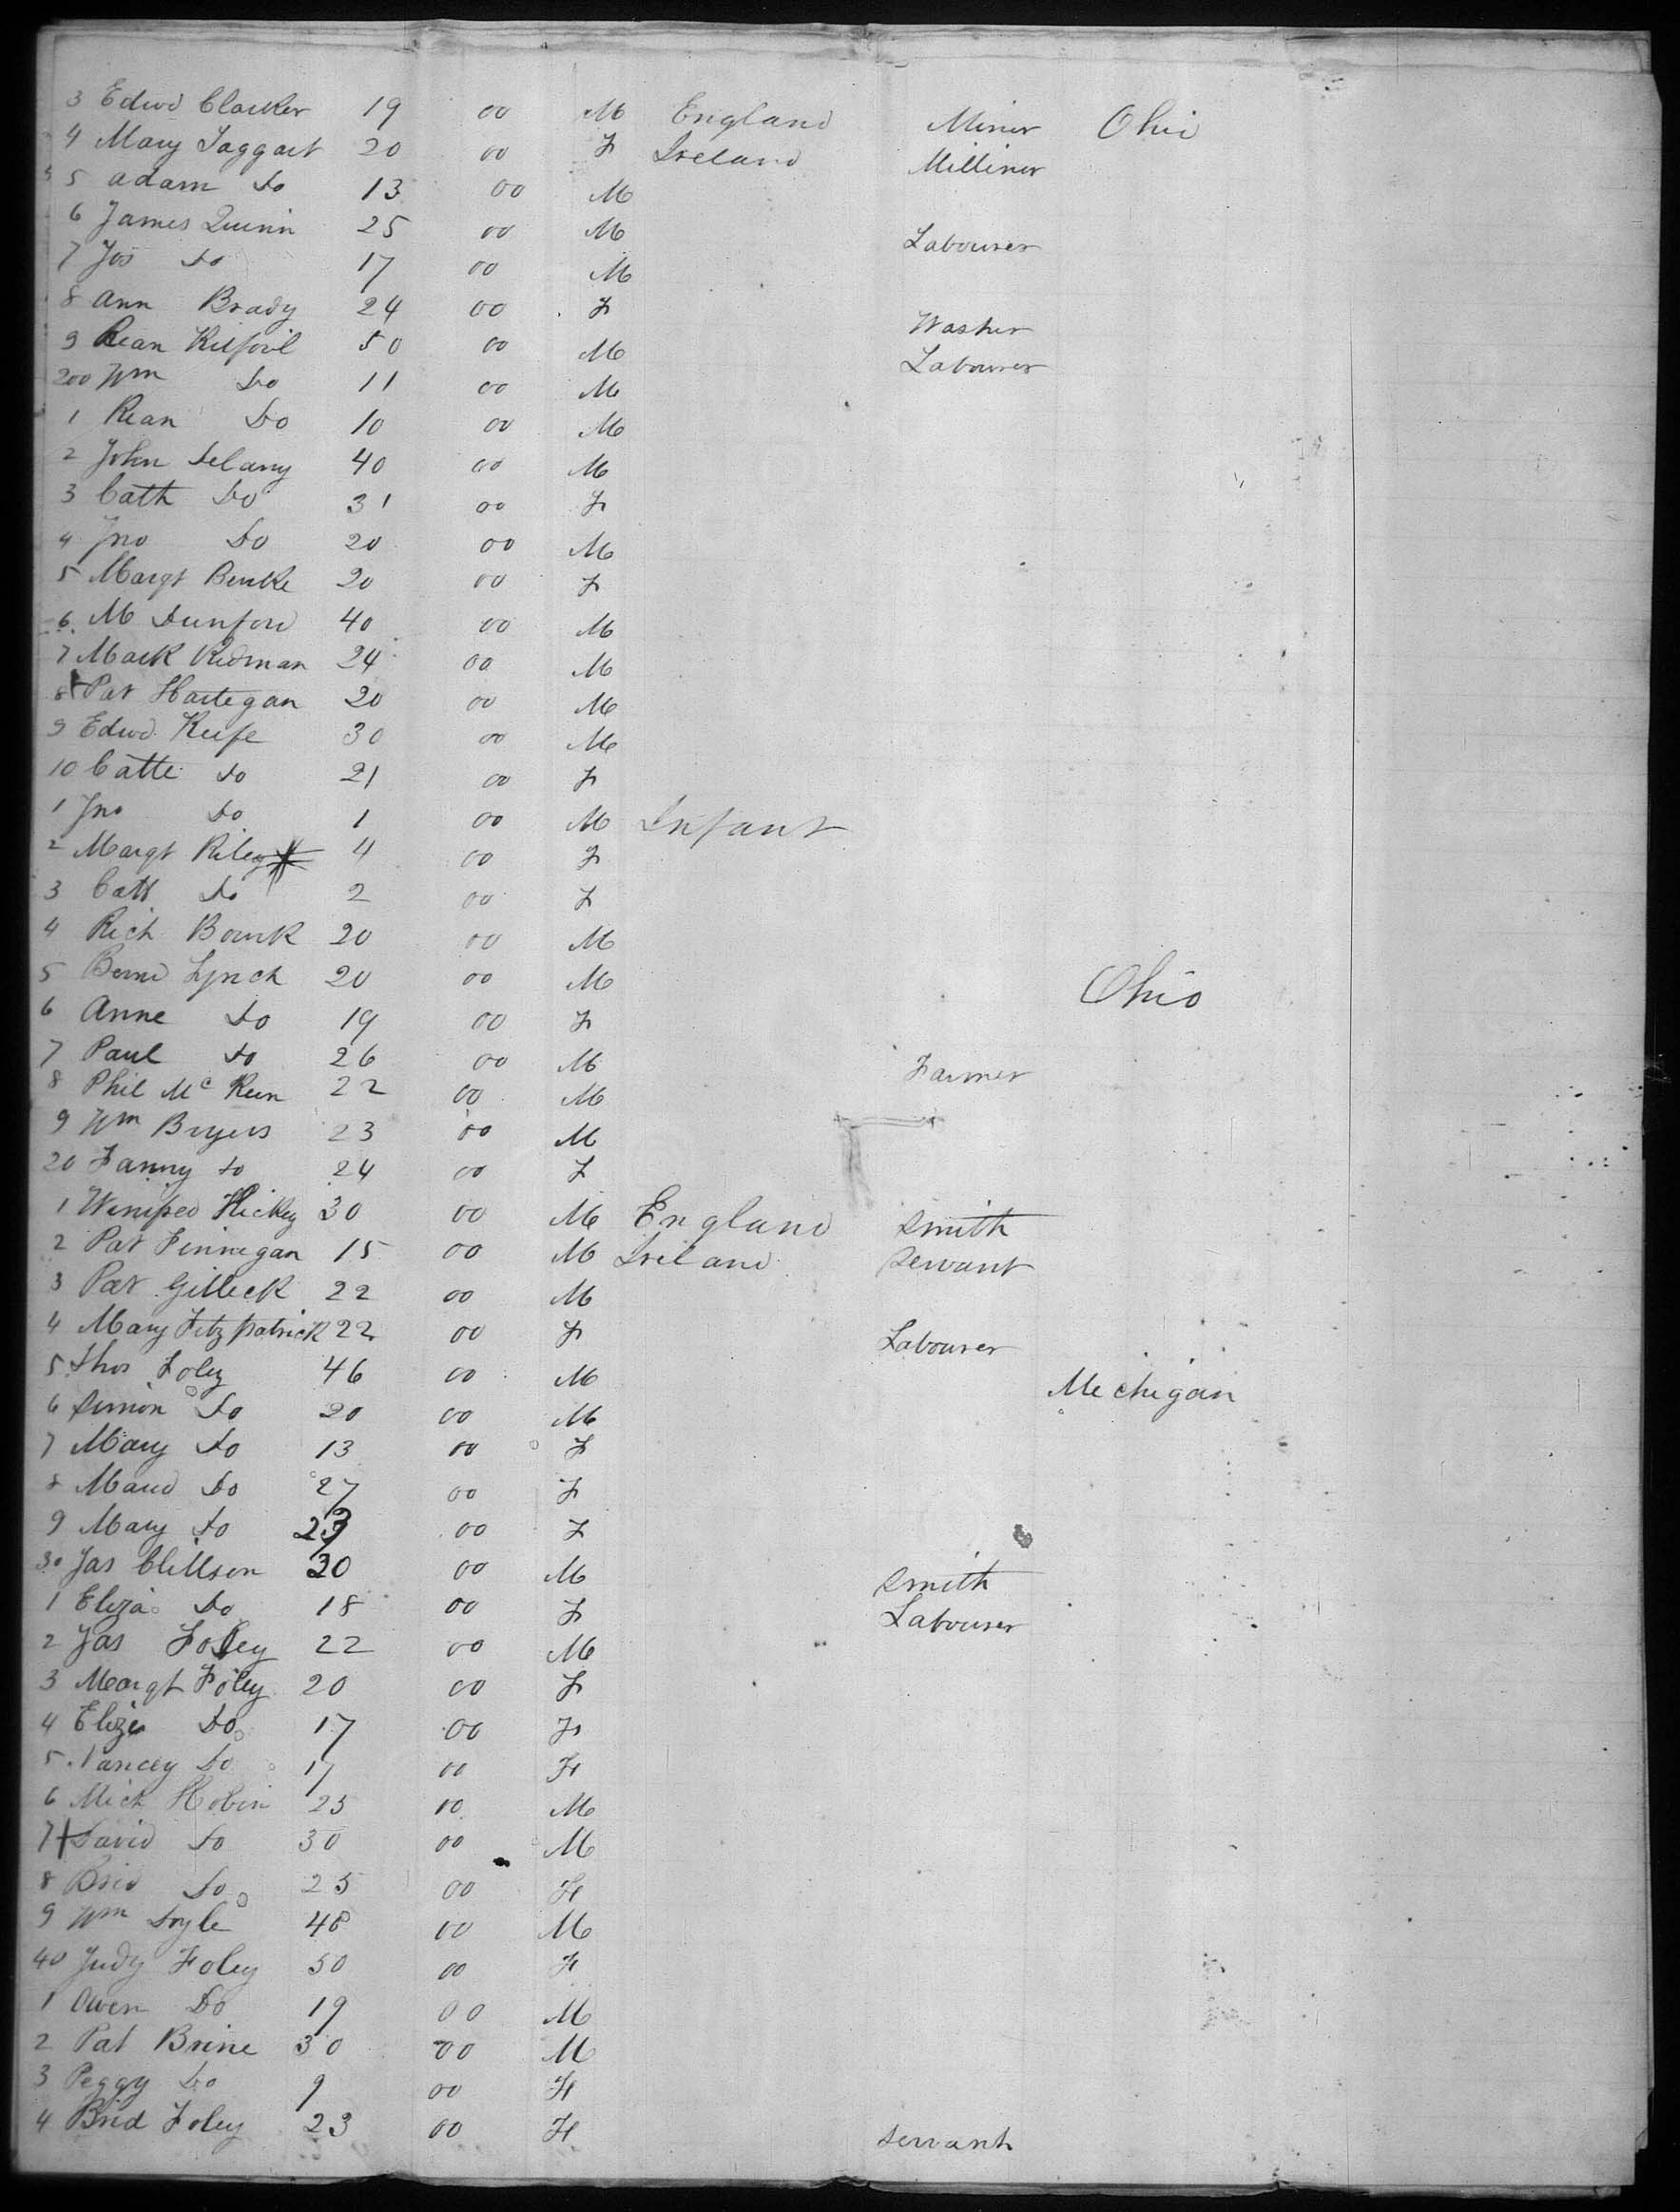 3 Edwd Clarker 19 00 M England Miner Ohio
4 Mary Taggart 20 00 F Ireland Milliner
5 Adam Do 13 00 M
6 James Quinn 25 00 M Labourer
7 Jos Do 17 00 M
8 Ann Brady 24 00 F Washer
9 Kean Kilfoil 50 00 M Labourer
200 Wm Do 11 00 M
1 Kean Do 10 00 M
2 John Delany 40 00 M
3 Cath Do 31 00 F
4 Jno Do 20 00 M
5 Margt Burke 20 00 F
6 M Dunford 40 00 M
7 Mark Redman 24 00 M
8 Pat Hartegan 20 00 M
9 Edwd Keefe 30 00 M
10 Catte Do 21 00 F
1 Jno Do 1 00 M Infant
2 Margt Riley 4 00 F
3 Catt Do 2 00 F
4 Rich Bourk 20 00 M
5 Bernd Lynch 20 00 M Ohio
6 Anne Do 19 00 F
7 Paul Do 26 00 M Farmer
8 Phil Mc Keen 22 00 M
9 Wm Bryers 23 00 M
20 Fanny Do 24 00 F
1 Winifred Hickey 30 00 M England Smith
2 Pat Finnegan 15 00 M Ireland Servant
3 Pat Gilleck 22 00 M
4 Mary Fitzpatrick 22 00 F Labourer
5 Thos Foley 46 00 M Michigan
6 Simon Do 20 00 M
7 Mary Do 13 00 F
8 Maud Do 27 00 F
9 Mary Do 23 00 F
30 Jas Clillson 30 00 M Smith
1 Eliza Do 18 00 F Labourer
2 Jas Foley 22 00 M
3 Margt Foley 20 00 F
4 Eliza Do 17 00 F
5 Nancey Do 17 00 F
6 Mich Hobin 25 00 M
7 David Do 30 00 M
8 Brid Do 25 00 F
9 Wm Doyle 48 00 M
40 Judy Foley 50 00 F
1 Owen Do 19 00 M
2 Pat Brine 30 00 M
3 Peggy Do 9 00 F
4 Brid Foley 23 00 F Servant